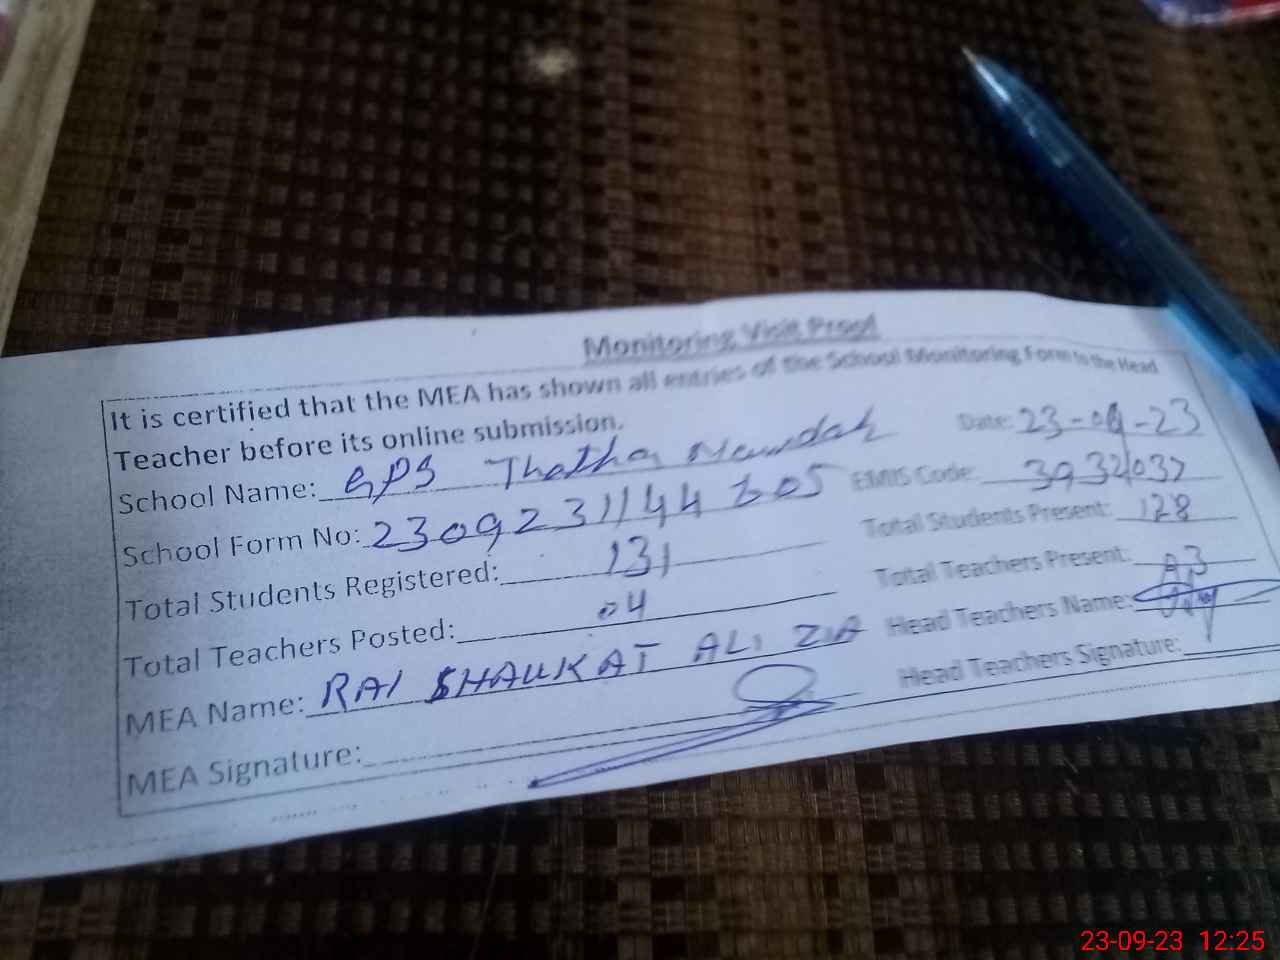 Monitoring Visit Proof
It is certified that the MEA has shown all entries of the School Monitoring Form to the Head
Teacher before its online submission.
Date: 23-09-23
School Name: GPS Thatha
EMIS Code:
School Form No:
Total Students Present: 128
Total Students Registered: 131
Total Teachers Present: 03
Total Teachers Posted: 04
Head Teachers Name:
MEA Name: RAI SHAUKAT ALI ZIA
Head Teachers Signature:
MEA Signature:
23-09-23 12:25